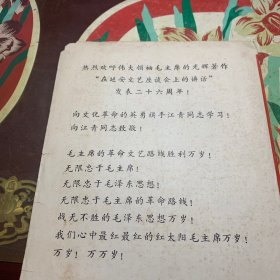 热烈欢呼伟大领袖毛主席的光辉著作
“在延安文艺座谈会上的讲话”
发表二十六周年！
向文化革命的英勇旗手江青同志学习！
向江青同志致敬！
毛主席的革命文艺路线胜利万岁！
无限忠于毛主席！
无限忠于毛泽东思想！
无限忠于毛主席的革命路线！
战无不胜的毛泽东思想万岁！
我们心中最红最红的红太阳毛主席万岁！
万岁！万万岁！